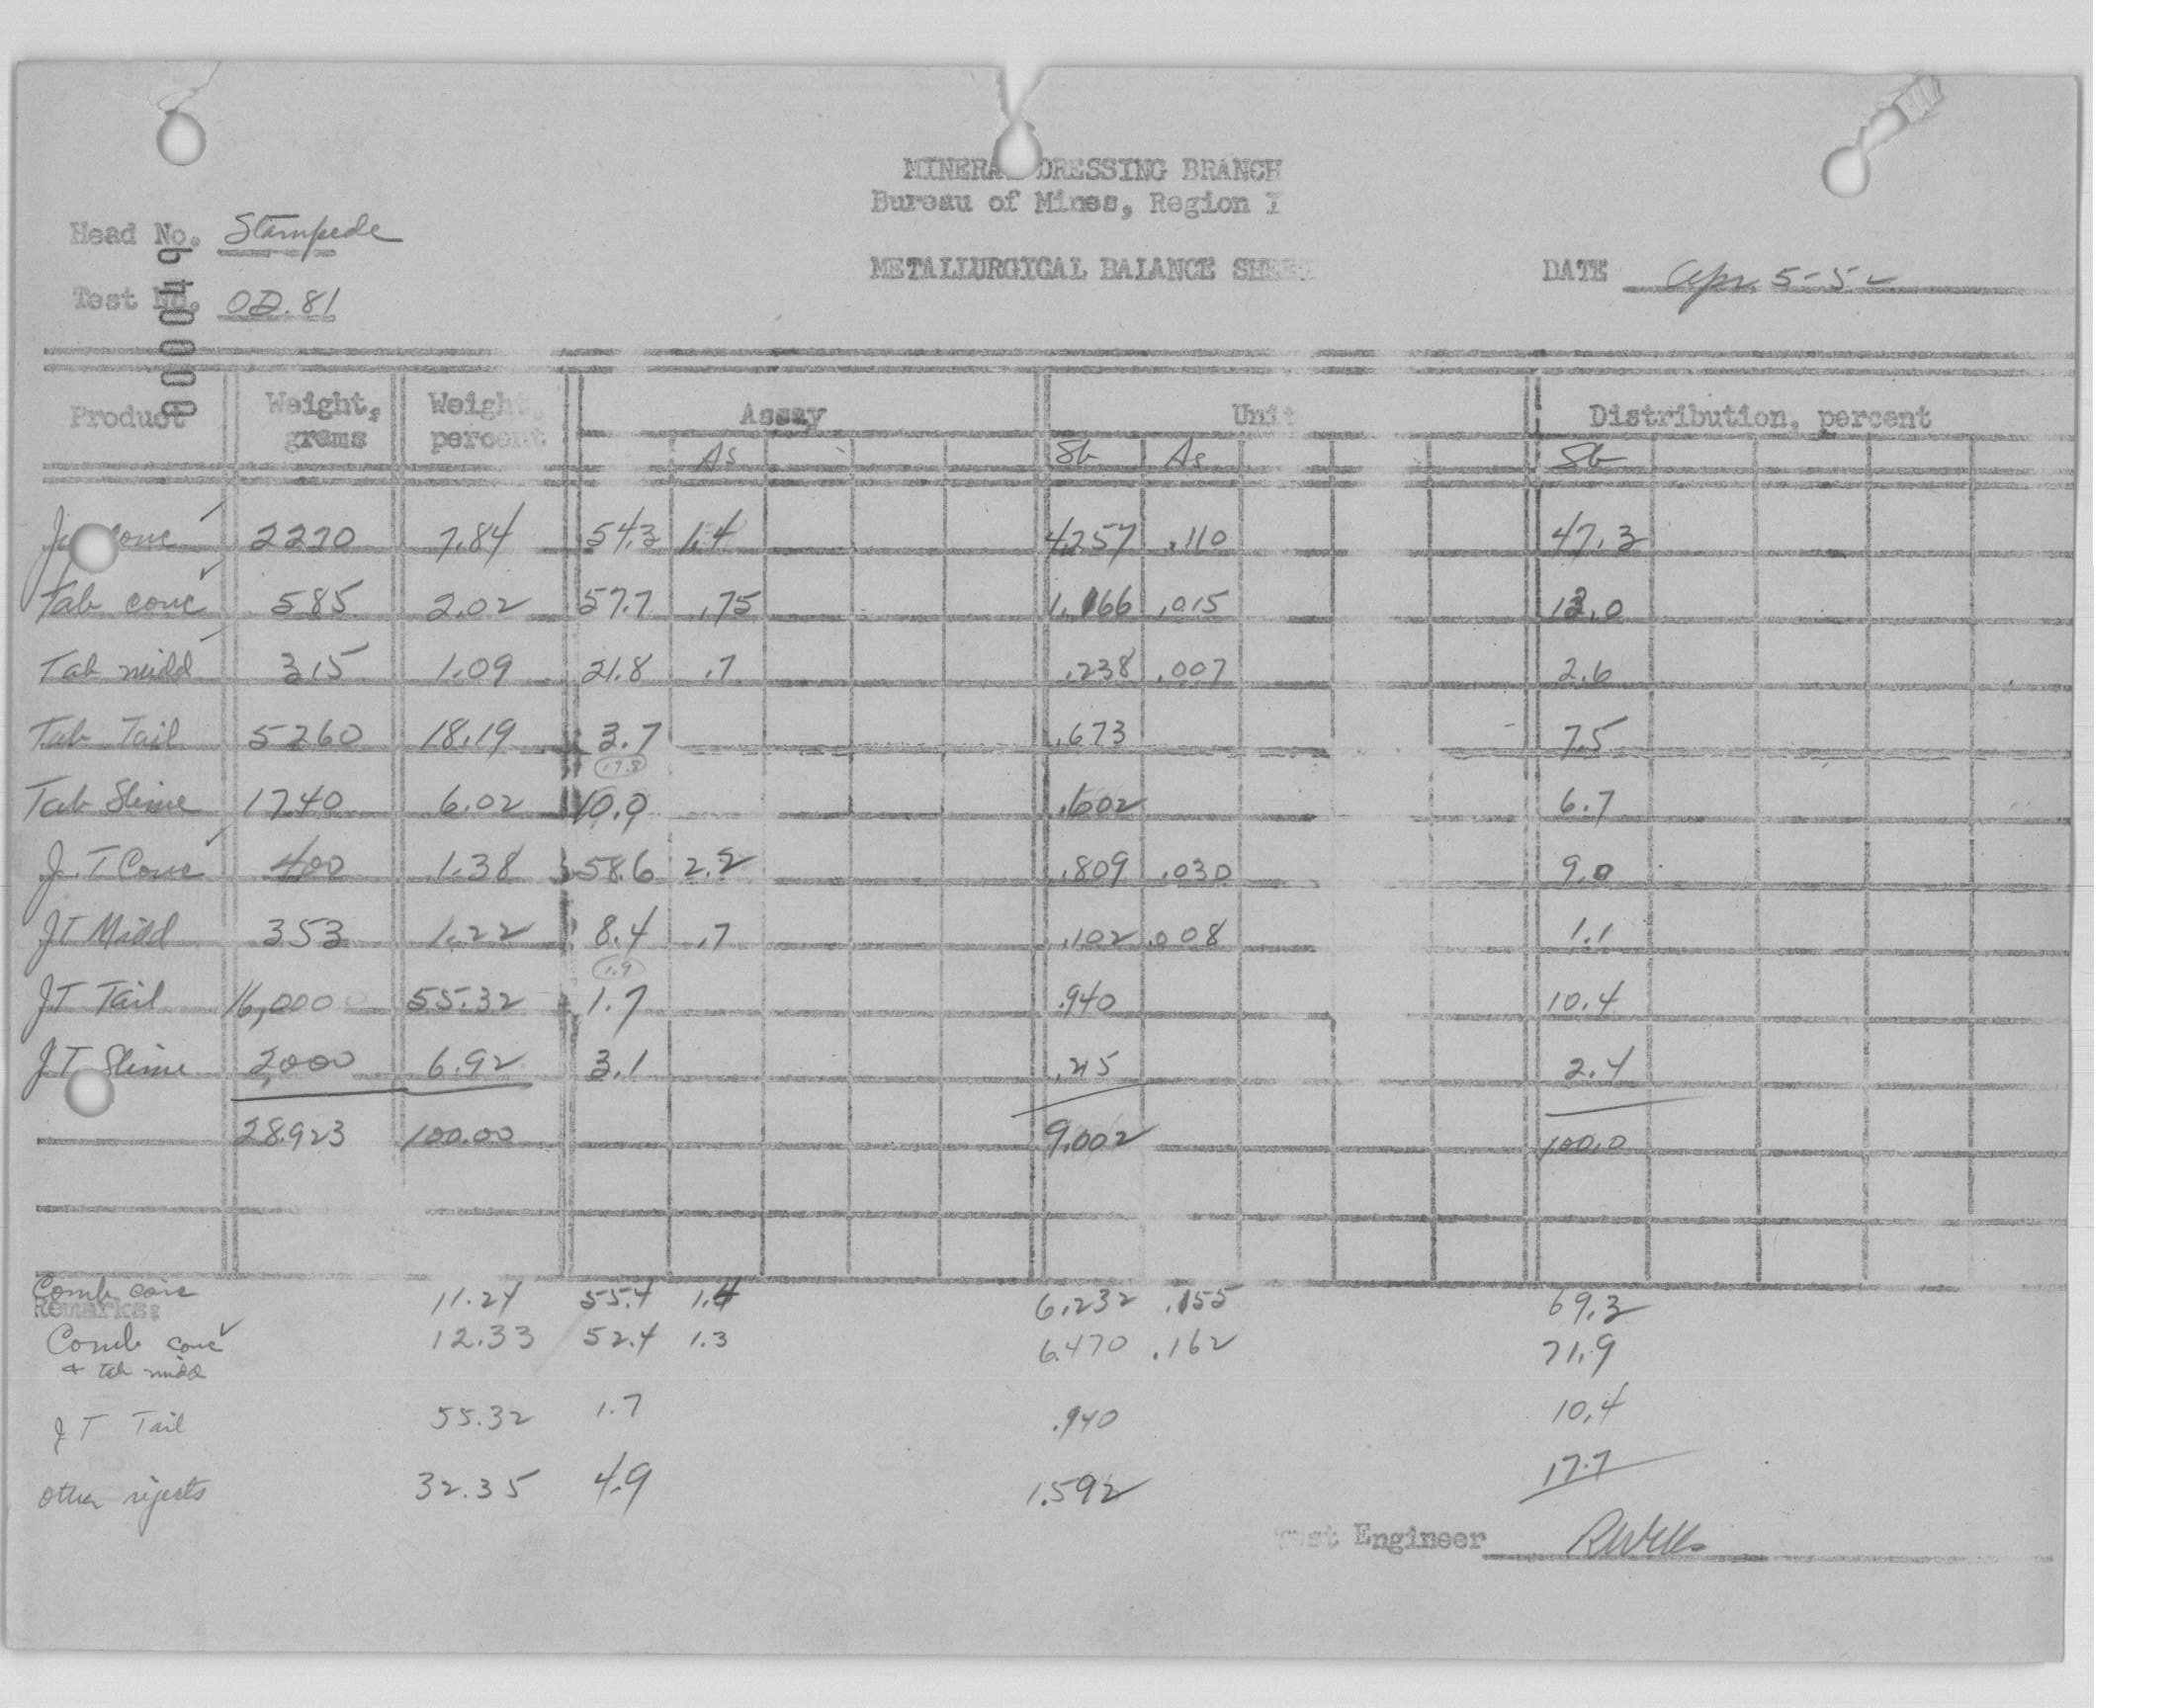 MINERAL DRESSING BRANCH
Bureau of Mines, Region I
Head No. Stampede
METALLURGICAL BALANCE SHEET
DATE Apr. 5-52
Test No. OD.81
Product Weight, grams Weight, percent Assay Unit Distribution, percent
As Sb As Sb
conc 2270 7.84 54.3 1.4 4.257 .110 47.3
Tab conc 585 2.02 57.7 .75 1.166 .015 13.0
Tab midd 315 1.09 21.8 .7 .238 .007 2.6
Tab Tail 5260 18.19 3.7 .673 7.5
Tab Slime 1740 6.02 10.0 .602 6.7
J.T Conc 400 1.38 58.6 2.2 .809 .030 9.0
JT Midd 353 1.22 8.4 .7 .102 .008 1.1
(1.9)
JT Tail 16,000 55.32 1.7 .940 10.4
JT Slime 2,000 6.92 3.1 .215 2.4
28.923 100.00 9.002 100.0
Comb conc 11.24 55.4 1.4 6.232 .155 69.3
Remarks:
Comb conc 12.33 52.4 1.3 6.470 .162 71.9
+ tab midd
JT Tail 55.32 1.7 .940 10.4
other rejects 32.35 4.9 1.592 17.7
Test Engineer RWells